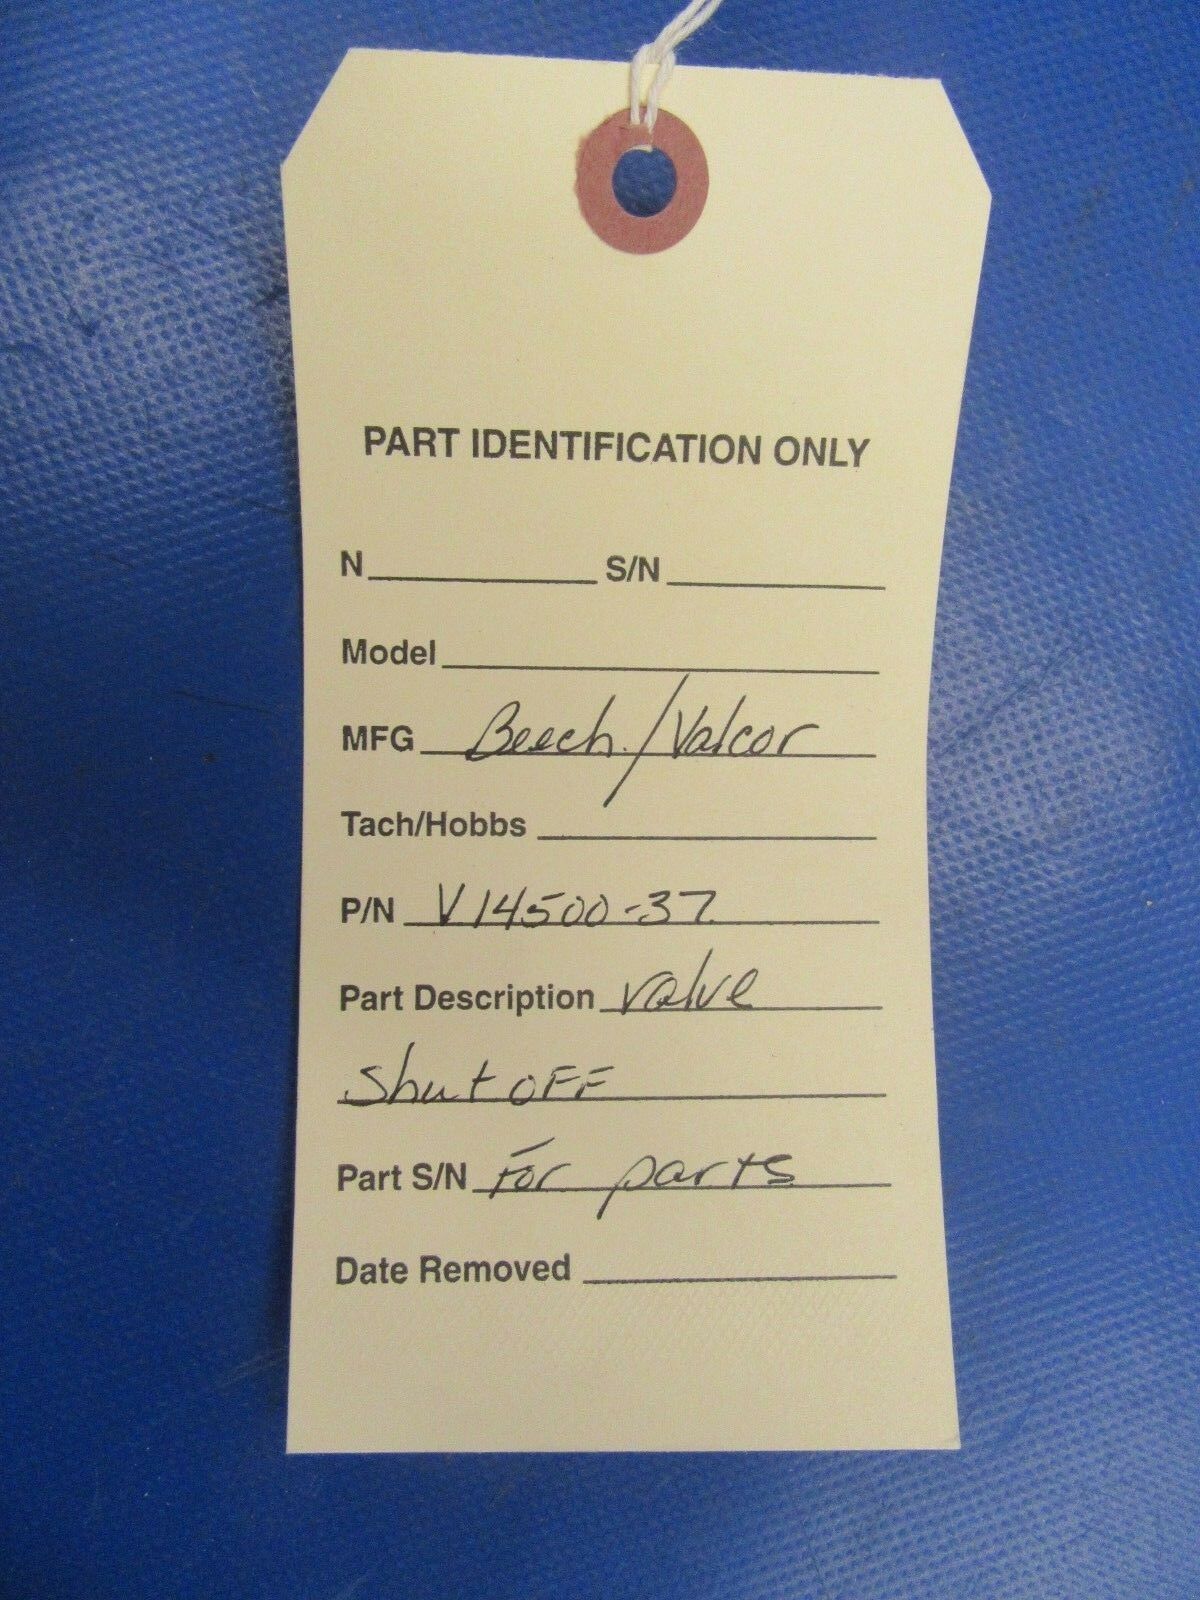 PART IDENTIFICATION ONLY
N S/N
Model
MFG Beech/Valcor
Tach/Hobbs
P/N V14500-37
Part Description valve
Shut OFF
Part S/N For parts
Date Removed